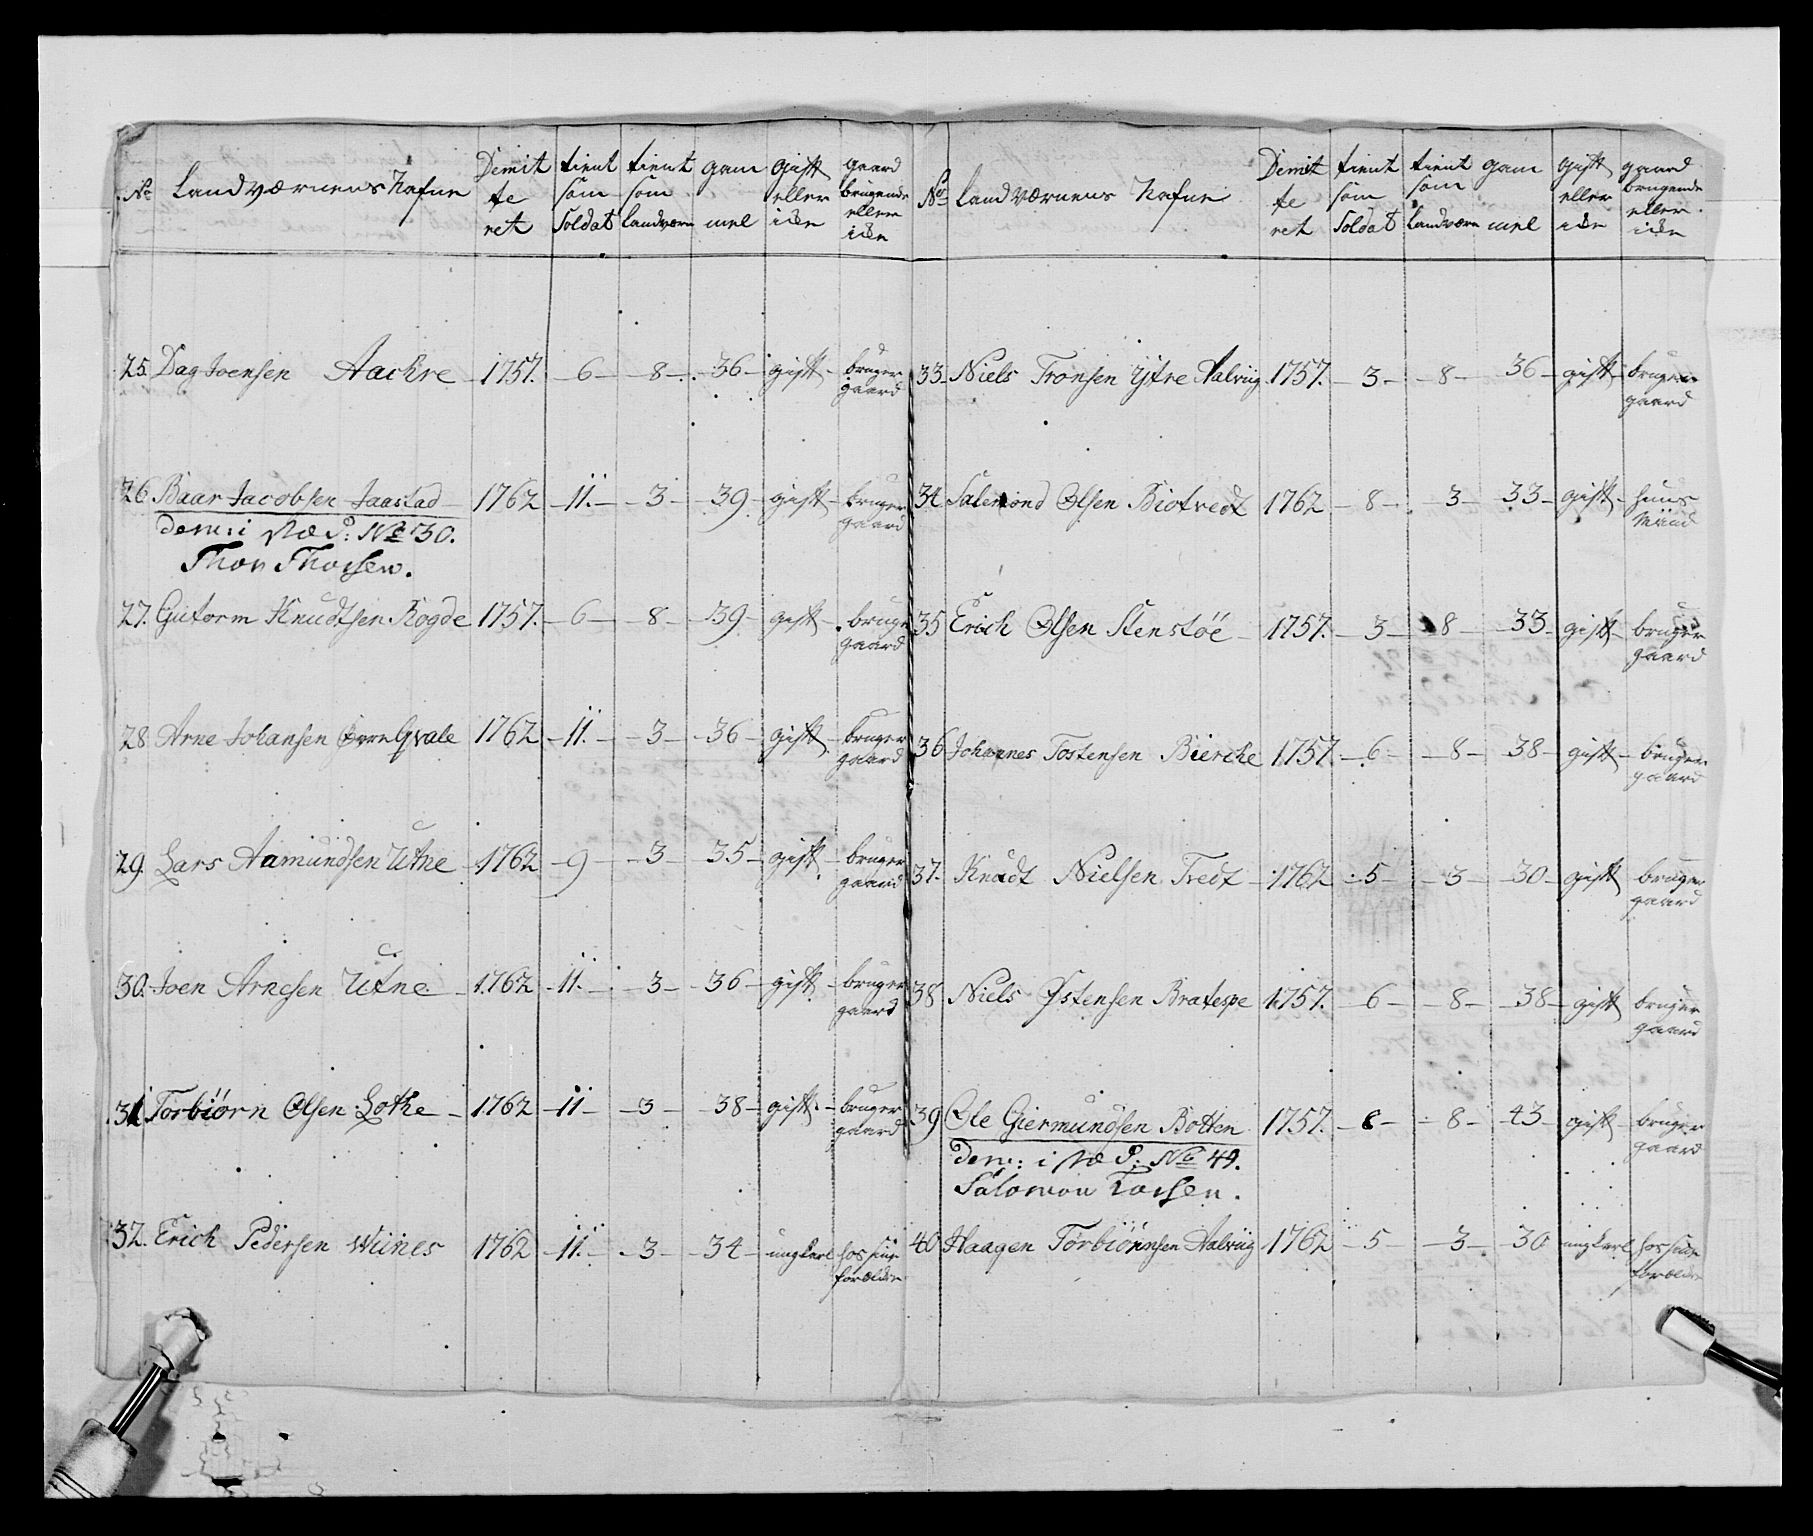 No Landværnens Nafne Demitteret tient som Soldat tient som Landværn gammel gift eller icke gaard brugende eller icke
25. Dag Joensen Aachre 1757. 6 8 36 gift bruger gaard
26 Baar Jacobsen Jaastad 1762 11. 3 39 gift bruger gaard
Dem: i No 30.
Thor Thorsen.
27. Gutorm Knudtsen Rogde 1757. 6 8 39 gift bruger gaard
28 Arne Johansen Øvre Qvale 1762 11. 3 36 gift bruger gaard
29. Lars Aamundsen Utne 1762 9 3 35 gift bruger gaard
30. Joen Arnesen Utne 1762 11. 3 36 gift bruger gaard
31 Torbiörn Olsen Lothe 1762 11 3 38 gift bruger gaard
32. Erich Pedersen Wiines 1762 11. 3 34 ungkarl hos sine forældre
No Landværnens Nafne Demitteret tient som Soldat tient som Landværn gammel gift eller icke gaard brugende eller icke
33 Niels Tronsen Ytre Aalviig 1757. 3 8 36 gift bruger gaard
34 Salemond Olsen Biotvedt 1762 8 3 33 gift huus Mand
35 Erich Olsen Stenstöe 1757. 3 8 33 gift bruger gaard
36 Johannes Tostensen Bierche 1757. 6 8 38 gift bruger gaard
37. Knudt Nielsen Tvedt 1762 5 3 30 gift bruger gaard
38 Niels Østensen Bratespe 1757. 6 8 38 gift bruger gaard
39 Ole Giermundsen Botten 1757. 6 8 43 gift bruger gaard
Dem: i No 49.
Salomon Larsen.
40 Haagen Torbiörnsen Aalviig 1762 5 3 30 ungkarl hos sine forældre